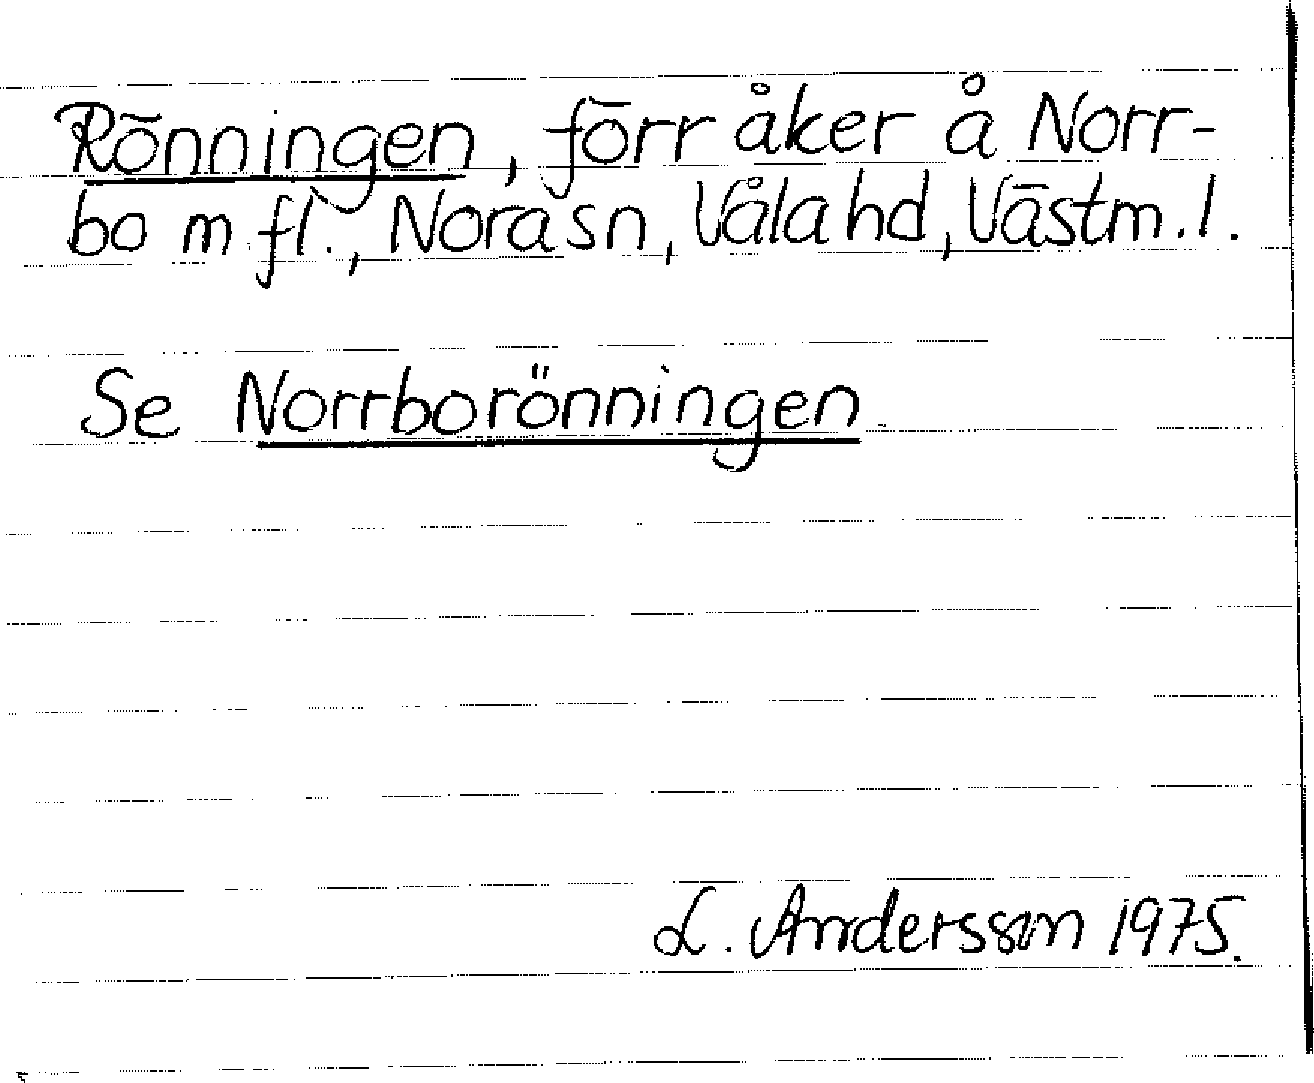 Rönningen, förr åker å Norr-
bo m fl., Nora sn, Våla hd, Västm. l.
Se Norrborönningen
L. Andersson 1975.